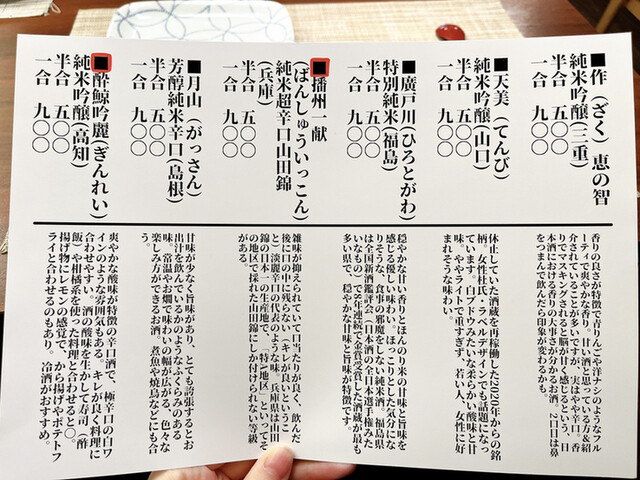 ■作（ざく）恵の智
純米吟醸（三重）
半合　五〇〇
一合　九〇〇
■天美（てんび）
純米吟醸（山口）
半合　五〇〇
一合　九〇〇
■廣戸川（ひろとがわ）
特別純米（福島）
半合　五〇〇
一合　九〇〇
■播州一献
（ばんしゅういっこん）
純米超辛口山田錦
（兵庫）
半合　五〇〇
一合　九〇〇
■月山（がっさん）
芳醇純米辛口（島根）
半合　五〇〇
一合　九〇〇
■酔鯨吟麗（ぎんれい）
純米吟醸（高知）
半合　五〇〇
一合　九〇〇
香りの良さが特徴で青りんごや洋ナシのようなフル
ーティで爽やかな香り。甘い酒と思っている方&紹
介されていることが多いですが、実はやや辛口。香
りでマスキングされると脳が甘く感じるという、日
本酒における香りの大事さが分かるお酒。2口目は鼻
をつまんで飲んだら印象が変わるかも。
休止していた酒蔵を再稼働した2020年からの銘
柄。女性杜氏・ラベルデザインでも話題になっ
ています。白ブドウみたいな柔らかい酸味と甘
味。ややライトで重すぎず、若い人、女性に好
まれそうな味わい。
穏やかな甘い香りとほんのり米の甘味と旨味を
感じる優しい味わい。ほっこりとした気分にな
りそうな、食事の邪魔をしない純米酒。福島県
は全国新酒鑑評会（日本酒の全日本選手権みた
いなもの）で8年連続で金賞受賞した酒蔵が最も
多い県で、穏やかな甘味と旨味が特徴です。
雑味が抑えられていて口当たりが良く、飲んだ
後に口の中に残らない（キレが良いというこ
と）淡麗辛口の代表のような味。兵庫県は山田
錦の日本一の生産地で、「特A地区」といってそ
の地区で採れた山田錦にしか付けられない等級
がある。
甘味が少なく旨味があり、とても誇張するとお
出汁を飲んでいるかのようなふくらみのある
味。常温やお燗で味わいの幅が広がる、色々な
楽しみ方ができるお酒。煮魚や焼鳥などにも合
う。
爽やかな酸味が特徴の辛口酒で、極辛口の白ワ
インのような雰囲気もある。キレが良く料理に
合わせやすい。酒の酸味を生かして寿司（酢
飯）や柑橘系を使った料理と合わせると◯。
揚げ物にレモンの感覚で、から揚げやポテトフ
ライと合わせるのもあり。冷酒がおすすめ。